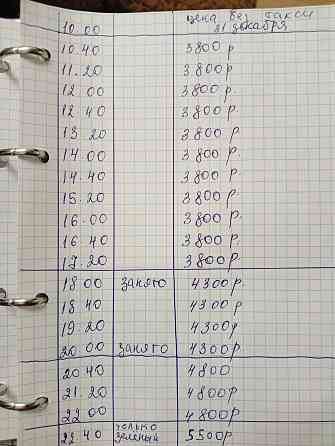 цена без такси
10.00 31 декабря
10 40 3800 р
11.20 3800р.
12 00 3800 р.
12 40 3800 р.
13 20 3800 р.
14 00 3800 р.
14.40 3800 р.
15.20 3800 р.
16.00 3800 р.
16 40 3800 р.
17.20 3800р.
18 00 занято 4300р.
18 40 4300 р.
19.20 4300р
20.00 занято 4300р
20 40 4800
21.20 4800р
22 00 4800р
только
22.40 зеленый 5500р